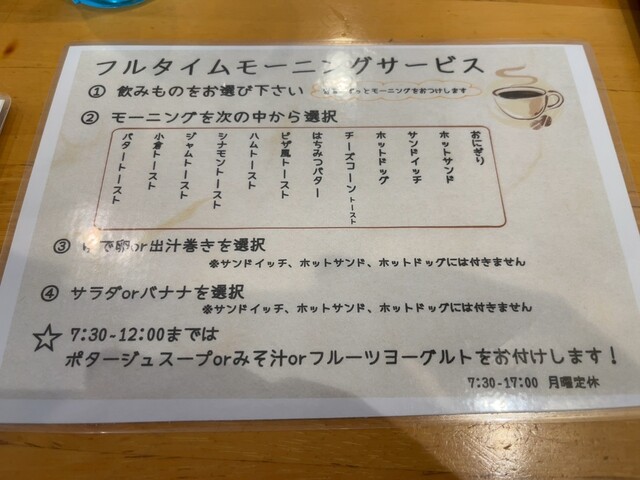 フルタイムモーニングサービス
① 飲みものをお選び下さい
とモーニングをおつけします
② モーニングを次の中から選択
おにぎり
ホットサンド
サンドイッチ
ホットドッグ
チーズコーントースト
はちみつバター
ピザ風トースト
ハムトースト
シナモントースト
ジャムトースト
小倉トースト
バタートースト
③ で卵or出汁巻きを選択
※サンドイッチ、ホットサンド、ホットドッグには付きません
④ サラダorバナナを選択
※サンドイッチ、ホットサンド、ホットドッグには付きません
☆ 7:30-12:00までは
ポタージュスープorみそ汁orフルーツヨーグルトをお付けします！
7:30-17:00 月曜定休